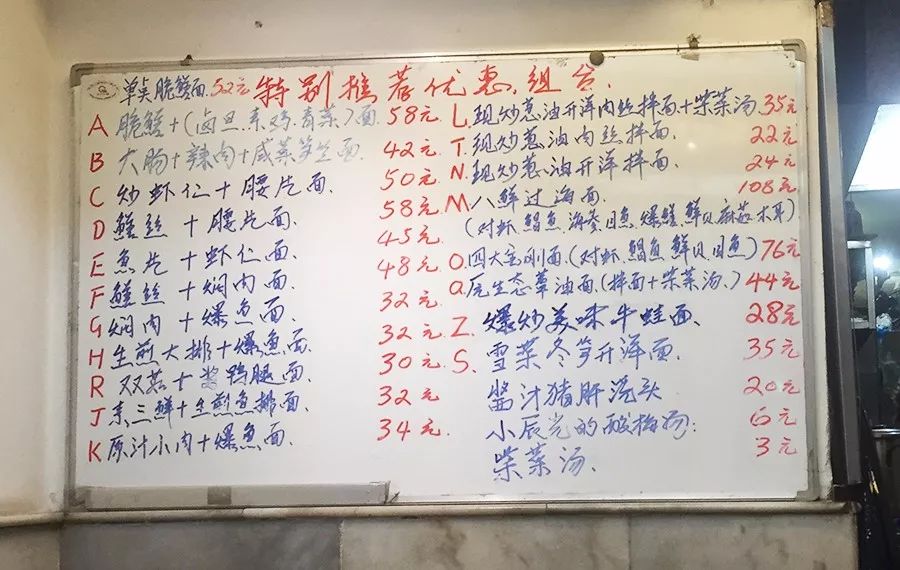 单点脆鳝面.52元 特别推荐优惠组合
A 脆鳝+(卤旦.素鸡.青菜)面 58元
B 大肠+辣肉+咸菜笋丝面. 42元
C 炒虾仁+腰片面. 50元
D 鳝丝+腰片面. 58元
E 鱼片+虾仁面. 45元
F 鳝丝+焖肉面. 48元
G 焖肉+爆魚面. 32元
H 生煎大排+爆魚面. 32元
R 双菇+酱鸭腿面. 30元
J 素三鲜+生煎魚排面. 32元
K 原汁小肉+爆魚面. 34元
L.现炒葱油开洋肉丝拌面+紫菜汤.35元
T.现炒葱油肉丝拌面. 22元
N.现炒葱油开洋拌面. 24元
M 八鲜过海面. 108元
(对虾.鲳鱼.海参.目鱼.爆鳝.鲜贝.麻菇.木耳)
O.四大金刚面.(对虾.鲳鱼.鲜贝.目鱼)76元
Q.原生态葷油面.(拌面+紫菜汤.)44元
Z. 爆炒美味牛蛙面. 28元
S. 雪菜冬笋开洋面. 35元
酱汁猪肝浇头 20元
小辰光的酸梅汤: 6元
紫菜汤. 3元